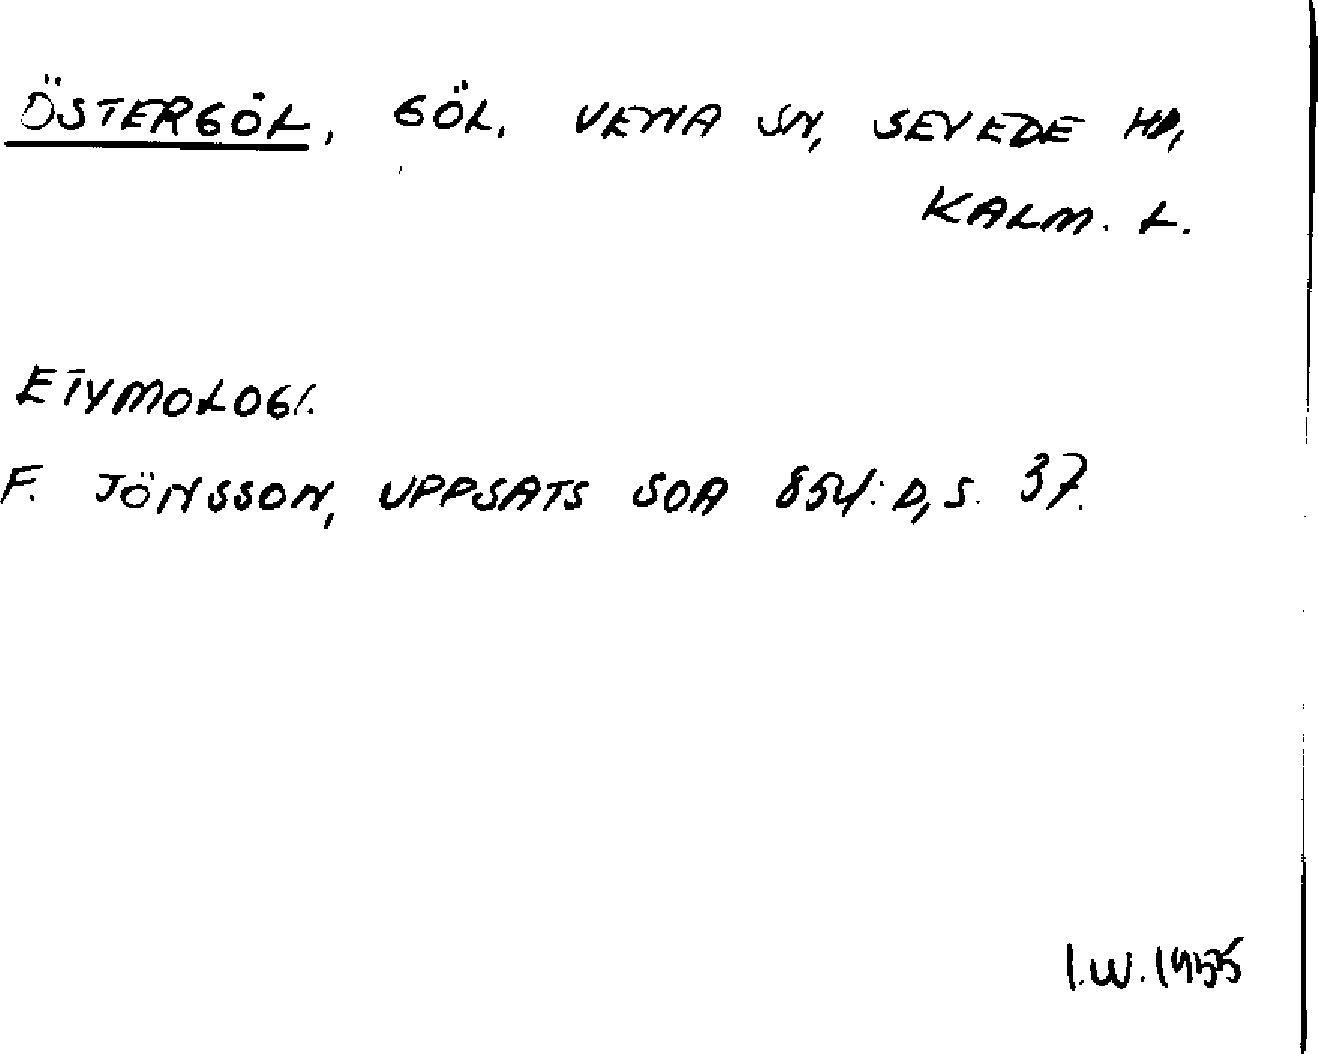 ÖSTERGÖL, GÖL, VENA SN, SEVEDE HD,
KALM. L.
ETYMOLOGI.
F. JÖNSSON, UPPSATS SOA 854:D, S. 37.
I.W. 1955